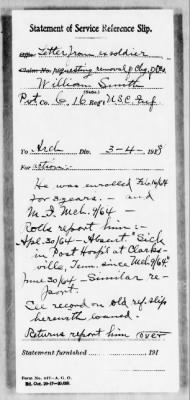 Statement of Service Reference Slip.
Letter from ex soldier
Claim No. requesting removal of Chg. of Des.
William Smith
(Name.)
Pvt Co. G, 16 Reg't U.S.C. Inf
To Arch Div. 3-4-, 1918
For action:
He was enrolled Feb 16/64
for 3 years. - and
M. I. Mch. 9/64 -
Rolls report him:-
Apl. 30/64 - Absent "Sick
in Post Hosp'l at Clarks-
ville, Tenn. since Mch. 9/64."
June 30/64 - Similar re-
port.
See record on old ref. slip
herewith loaned.
Returns report him (over
Statement furnished 191
Form No. 447-A. G. O.
Ed. Oct. 29-17-20,000.